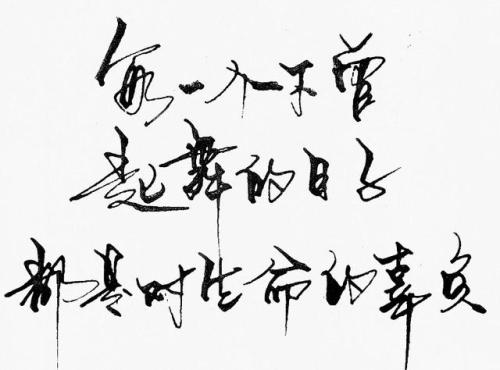 每一个不曾
起舞的日子
都是对生命的辜负